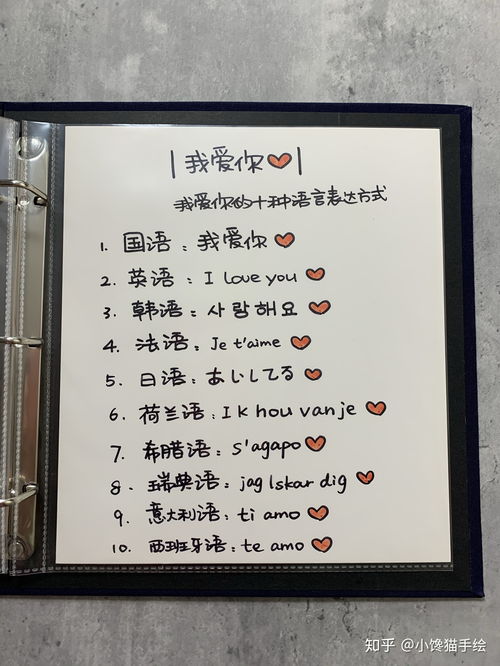 |我爱你❤|
我爱你的十种语言表达方式
1. 国语：我爱你❤
2. 英语：I love you❤
3. 韩语：사랑해요❤
4. 法语：Je t'aime❤
5. 日语：あいしてる❤
6. 荷兰语：Ik hou van je❤
7. 希腊语：s'agapo❤
8. 瑞典语：jag lskar dig❤
9. 意大利语：ti amo❤
10. 西班牙语：te amo❤
知乎 @小馋猫手绘